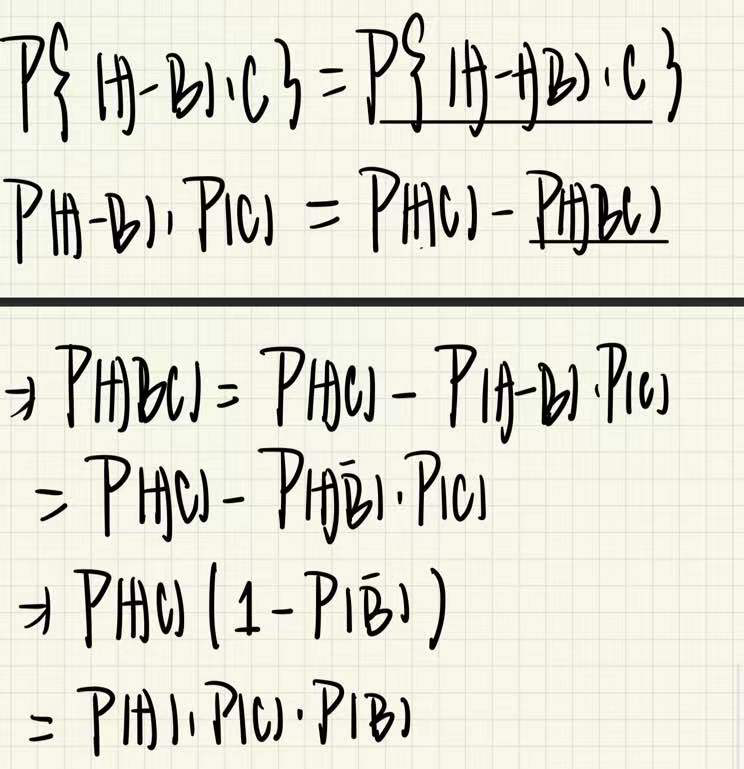 P{(A-B)·C} = P{(A-AB)·C}
P(A-B)·P(C) = P(AC) - P(ABC)
→ P(ABC) = P(AC) - P(A-B)·P(C)
= P(AC) - P(AB̄)·P(C)
→ P(AC)(1-P(B̄))
= P(A)·P(C)·P(B)